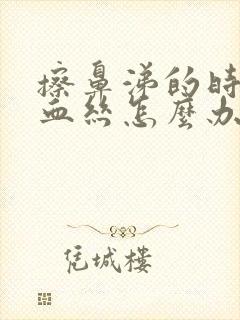 擦鼻涕的时
血丝怎麼办
凭城楼